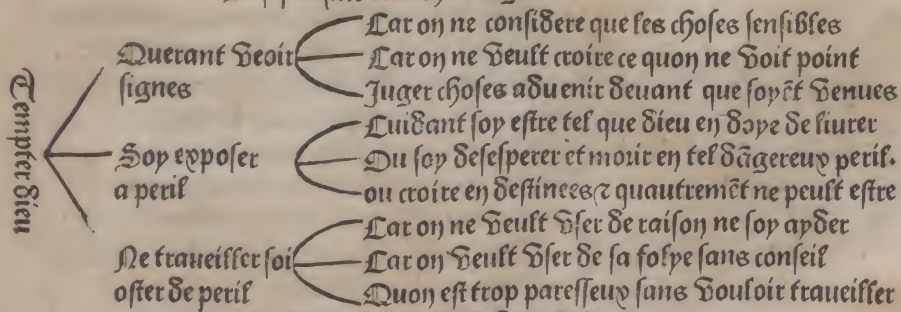 Tempter dieu
Querant veoir
signes
Car on ne considere que les choses sensibles
Car on ne veult croire ce quon ne voit point
Juger choses aduenir deuant que soyēt venues
Soy exposer
a peril
Cuidant soy estre tel que dieu en doye deliurer
Ou soy desesperer et mourir en tel dāgereux peril.
ou croire en destinees ⁊ quautremēt ne peult estre
Ne traueiller soi
oster de peril
Car on ne veult vser de raison ne soy ayder
Car on veult vser de sa folye sans conseil
Quon est trop paresseux sans vouloir traueiller